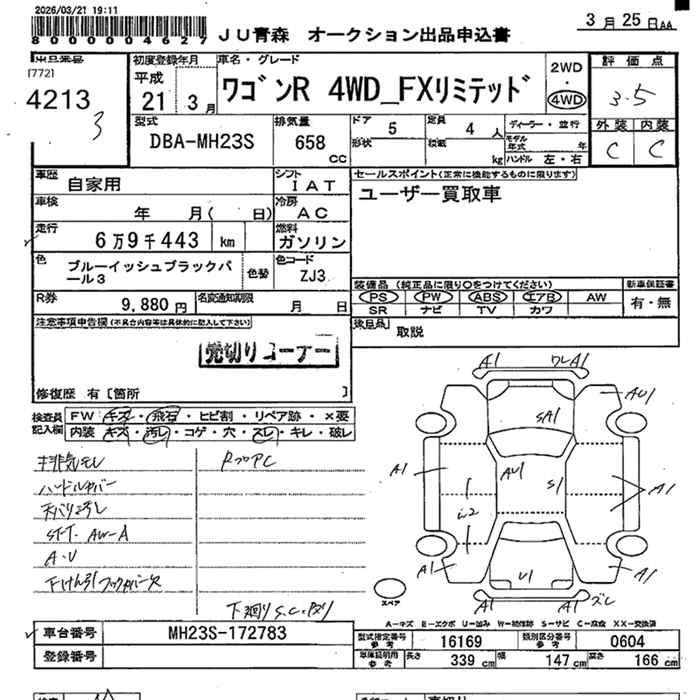 2026/03/21 19:11
8000004627
JU青森 オークション出品申込書
3月25日AA
出品番号
[772]
4213
3
初度登録年月
平成
21 3月
車名・グレード
ワゴンR 4WD_FXリミテッド
2WD
・
4WD
評価点
3.5
外装 内装
C C
型式
DBA-MH23S
排気量
658
cc
ドア 5
定員 4 人
形状
積載 kg
ディーラー・並行
モデル年式 年
ハンドル 左・右
車歴
自家用
シフト
IAT
車検
年 月( 日)
冷房
AC
走行
6万9千443 km
燃料
ガソリン
色
ブルーイッシュブラックパール3
色替
色コード
ZJ3
R券
9,880 円
名変通知期限
月 日
セールスポイント(正常に機能するものに限ります)
ユーザー買取車
装備品 (純正品に限り○をつけてください)
PS PW ABS エアB AW
SR ナビ TV カワ
新車保証書
有・無
後日品
取説
注意事項申告欄(不具合内容等は具体的に記入して下さい)
売切りコーナー
修復歴 有 [箇所 ]
検査員記入欄
FW キズ・飛石・ヒビ割・リペア跡・×要
内装 キズ・汚レ・コゲ・穴・スレ・キレ・破レ
排気モレ
ハンドルカバー
天バリ汚レ
ST-T. AW-A
A・U
下廻りS.C.
A1
A1
AU1
SA1
AU1
A1
S1
A1
U1
A1
A1
A1
A1
ズレ
スペア
A-キズ E-エクボ U-凹み W-補修跡 S-サビ C-腐食 XX-交換済
車台番号
MH23S-172783
登録番号
型式指定番号
参考
16169
類別区分番号
参考
0604
車体証明用
参考
長さ 339 cm
幅 147 cm
高さ 166 cm